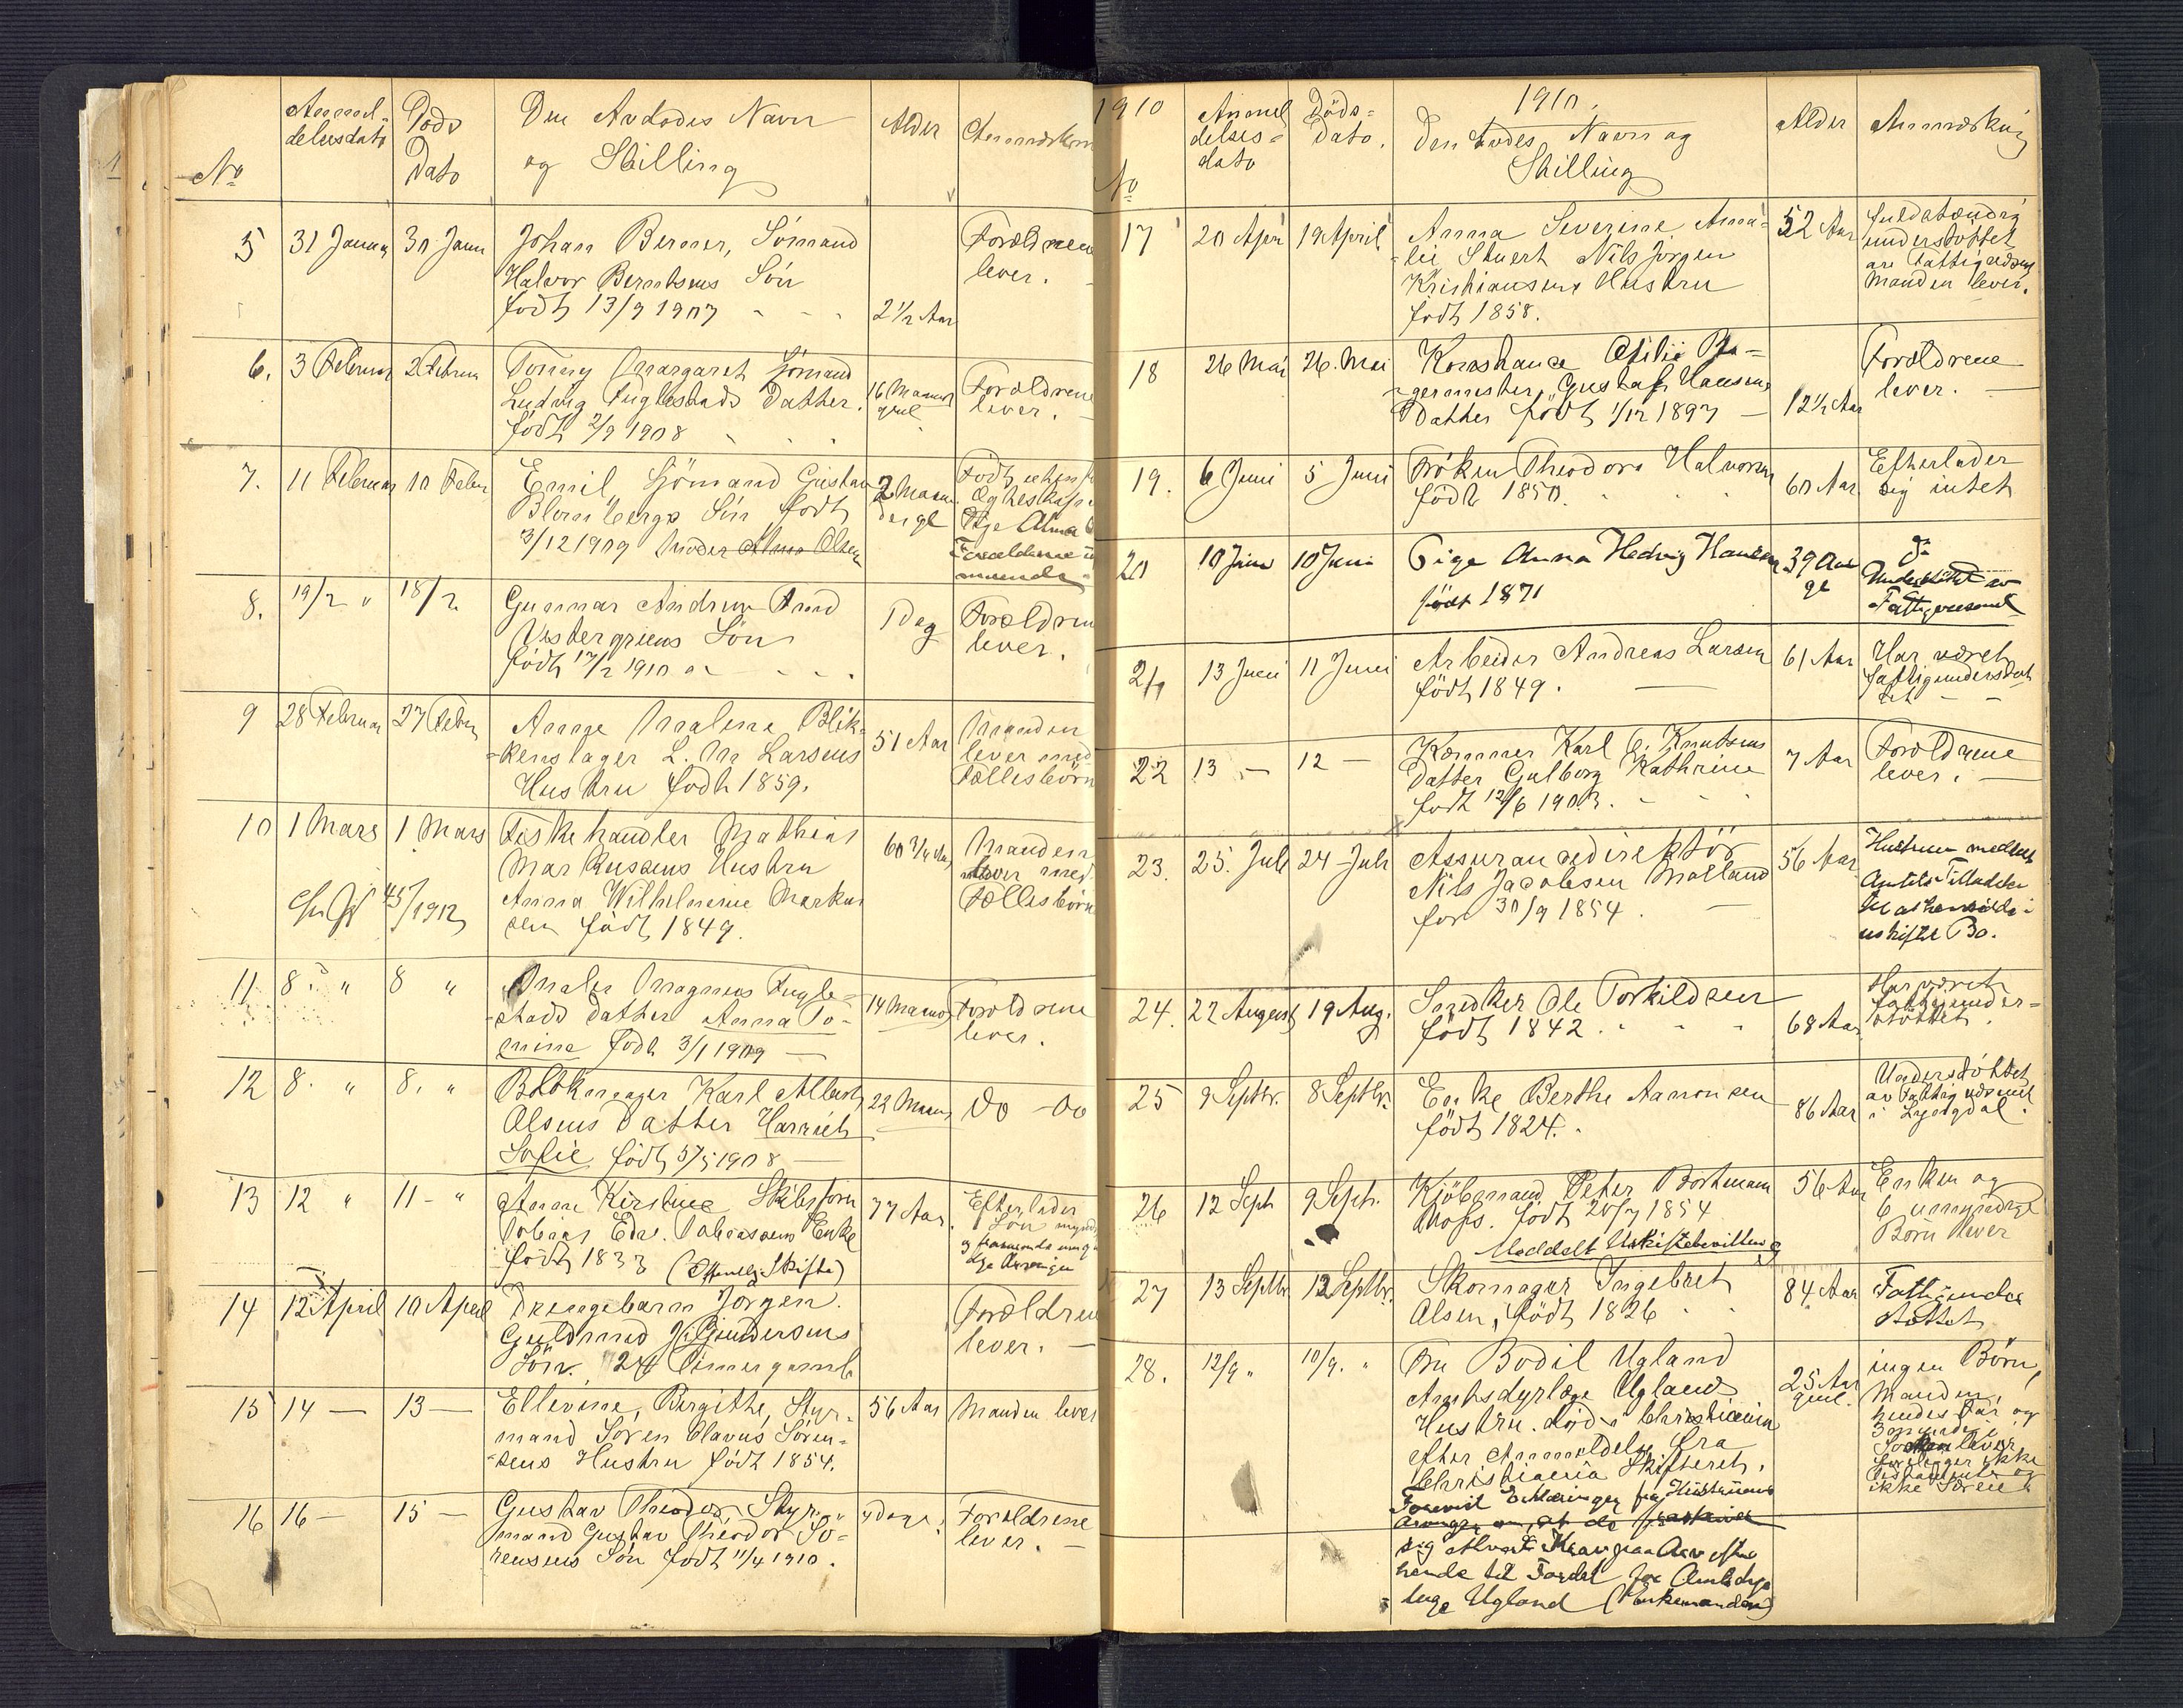 No
Anmel-
delsesdato
Döds
Dato
Den Avdödes Navn
og Stilling
Alder
5
31 Januar
30 Janu
Johan Berner, Sømand
Halvor Berntsens Sön
född 13/9 1907
2 1/2 Aar
Forældrene
lever.
6.
3 Februar
2 Februar
Tonny Margaret Sømand
Ludvig Fuglestads Datter.
født 2/9 1908
16 Maaner
gml
Forældrene
lever.
7.
11 Februar
10 Febr
Emil, Sjömand Gustav
Blombergs Sön født
3/12 1909 Moder Alma Olsen
2 Maane
der gl
Født uden
Ægteskap
Pige Alma
Forældrene
8.
19/2 "
18/2
Gunnar Andreas
Vestergrens Sön
født 17/2 1910
1 Dag
Forældrene
lever.
9
28 Februar
27 Febr
Anne Malene Blik-
kenslager L. M. Larsens
Hustru født 1859.
51 Aar
Manden
lever med
Fællesbörn
10
1 Mars
1 Mars
Fiskehandler Mathias
Markussens Hustru
Anna Wilhelmine Markus
sen født 1849.
60 3/4 Aar
Manden
lever med
Fællesbörn
11
8. "
8 "
Maler Magnus Fugle-
stads datter Anna To-
mine født 3/1 1909
14 Maaned
Forældrene
lever.
12
8. "
8. "
Karl Albert
Olsens Datter Harriet
Sofie født 5/5 1908
22 Maan
Do - Do
13
12 "
11 - "
Anne Kirstine Skibsfører
Tobias Edv. Tobiassens Enke
født 1833 (Offentlig Skifte)
77 Aar.
Efterlader
Sön myndig
14
12 April
10 April
Drengebarn Jørgen.
Guldsmed J. Gundersens
Sön. 24 Timer gamle
Forældrene
lever.
15
14 —
13 —
Ellevine, Birgithe, Styr-
mand Søren Olavus Søren-
sens Hustru født 1854.
56 Aar
Manden lever
16
16 —
15 —
Gustav Theodor, Styr-
mand Gustav Theodor Sö-
rensens Sön født 11/4 1910.
4 Dage.
Forældrene
lever.
1910
No
Anmel
delses-
dato
Döds-
Dato.
1910.
Den Dödes Navn og
Stilling
Alder
Anmærkning
17
20 Apri
19 April
Anna Severine Ama-
lie Stuert Nils Jørgen
Kristiansens Hustru
født 1858.
52 Aar
Fuldstændig
understöttet
av Fattigvæsen
Manden lever.
18
26 Mai
26. Mai
Konstance Otilie
Gustaf Hansens
Datter född 1/12 1897
12 1/2 Aar
Forældrene
lever.
19.
6 Juni
5 Juni
Fröken Theodora Halvorsen
född 1850.
60 Aar
Efterlader
sig intet
20
10 Juni
10 Juni
Pige Anna Hedvig Hansen
født 1871
39 Aar
gl
Understöttet av
Fattigvæsenet
21
13 Juni
11 Juni
Arbeider Andreas Larsen
född 1849.
61 Aar
Har været
fattigunderstöt
tet
22
13 —
12 —
Kæmner Karl C. Knutsens
Datter Gulborg Kathrine
født 12/6 1903.
7 Aar
Forældrene
lever.
23.
25. Juli
24 Juli
Assurancedirektör
Nils Jacobsen Mølland
før 30/9 1854.
56 Aar
Hustruen meddelt
Amtets Tilladelse
uskiftet Bo.
24.
22 August
19 Aug.
Snedker Ole Torkildsen
født 1842.
68 Aar
Har været
fattigunder-
støttet.
25
9 Septbr.
8 Septbr.
Enke Berthe Aanonsen
født 1824.
86 Aar
Understöttet
av Fattigvæsenet
i Lyngdal.
26
12 Sept
9 Sept.
Kjöbmand Peter Bortmann
født 20/7 1854
Meddelt Uskiftebevilling
56 Aar
Enken og
6 umyndige
Börn lever
27
13 Septbr
12 Septbr.
Skomager Ingebret
Olsen, född 1826
84 Aar
Fattigunder
støttet
28.
12/9 "
10/9. "
Fru Bodil Ugland
Amtsdyrlæge Uglands
Hustru. död i Christiania
efter Anmeldelse fra
Christiania Skifteret.
Foreviist Erklæringer fra Hustruens
Arvinger om, at de fraskriver
sig ethvert Krav paa Arv efter
hende til Fordel for Amtsdyr
læge Ugland (Enkemanden)
25 Aar
gml.
ingen Börn,
Manden,
hendes Far og
3 myndige
Søsken lever
foreligger ikke
Testamente og
ikke Særeie